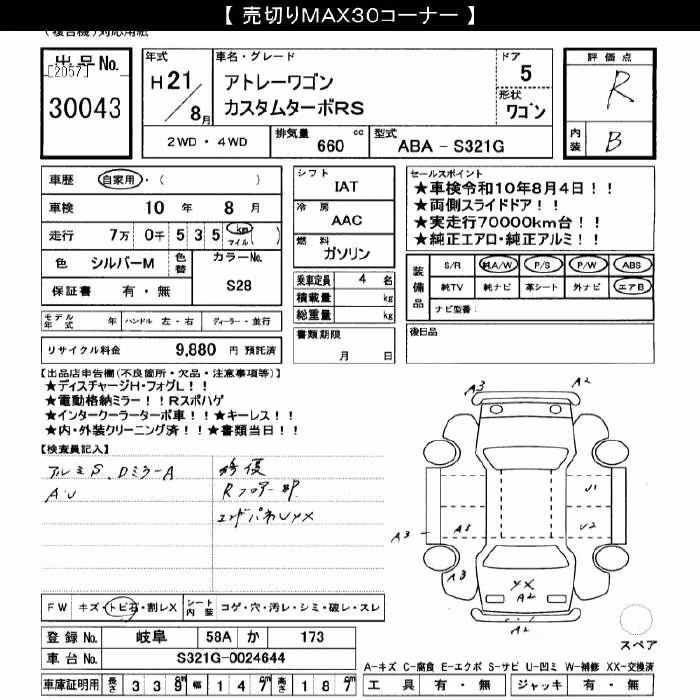 【 売切りMAX30コーナー 】
(複合機)対応用紙
出品No.
[2057]
30043
年式
H21/8月
車名・グレード
アトレーワゴン
カスタムターボRS
ドア
5
形状
ワゴン
2WD・4WD
排気量 660 cc
型式 ABA - S321G
評価点
R
内装
B
車歴 自家用・( )
車検 10 年 8 月
走行 7万 0千 5 3 5 km マイル ( )
色 シルバーM
色替
カラーNo.
S28
保証書 有・無
シフト
IAT
冷房
AAC
燃料
ガソリン
乗車定員 4 名
積載量 kg
総重量 kg
書類期限
月 日
セールスポイント
★車検令和10年8月4日！！
★両側スライドドア！！
★実走行70000km台！！
★純正エアロ・純正アルミ！！
装備品
S/R 純A/W P/S P/W ABS
純TV 純ナビ 革シート 外ナビ エアB
ナビ型番：
後日品
モデル年式 年 ハンドル 左・右 ディーラー・並行
リサイクル料金 9,880 円 預託済
【出品店申告欄(不良箇所・欠品・注意事項等)】
★ディスチャージH・フォグL！！
★電動格納ミラー！！Rスポハゲ
★インタークーラーターボ車！！★キーレス！！
★内・外装クリーニング済！！★書類当日！！
【検査員記入】
アルミS、DミラーA
A・U
修復
Rフロアー部
エンドパネUYX
A3
A2
U1
A3
A3
U2
A3
YX
A2
A2
スペア
FW キズ・トビ石・割レX
シート内装 コゲ・穴・汚レ・シミ・破レ・スレ
登録No. 岐阜 58A か 173
車台No. S321G-0024644
車庫証明用 長さ 3 3 9m 幅 1 4 7m 高さ 1 8 7m
A-キズ C-腐食 E-エクボ S-サビ U-凹ミ W-補修 XX-交換済
工具 有・無 ジャッキ 有・無